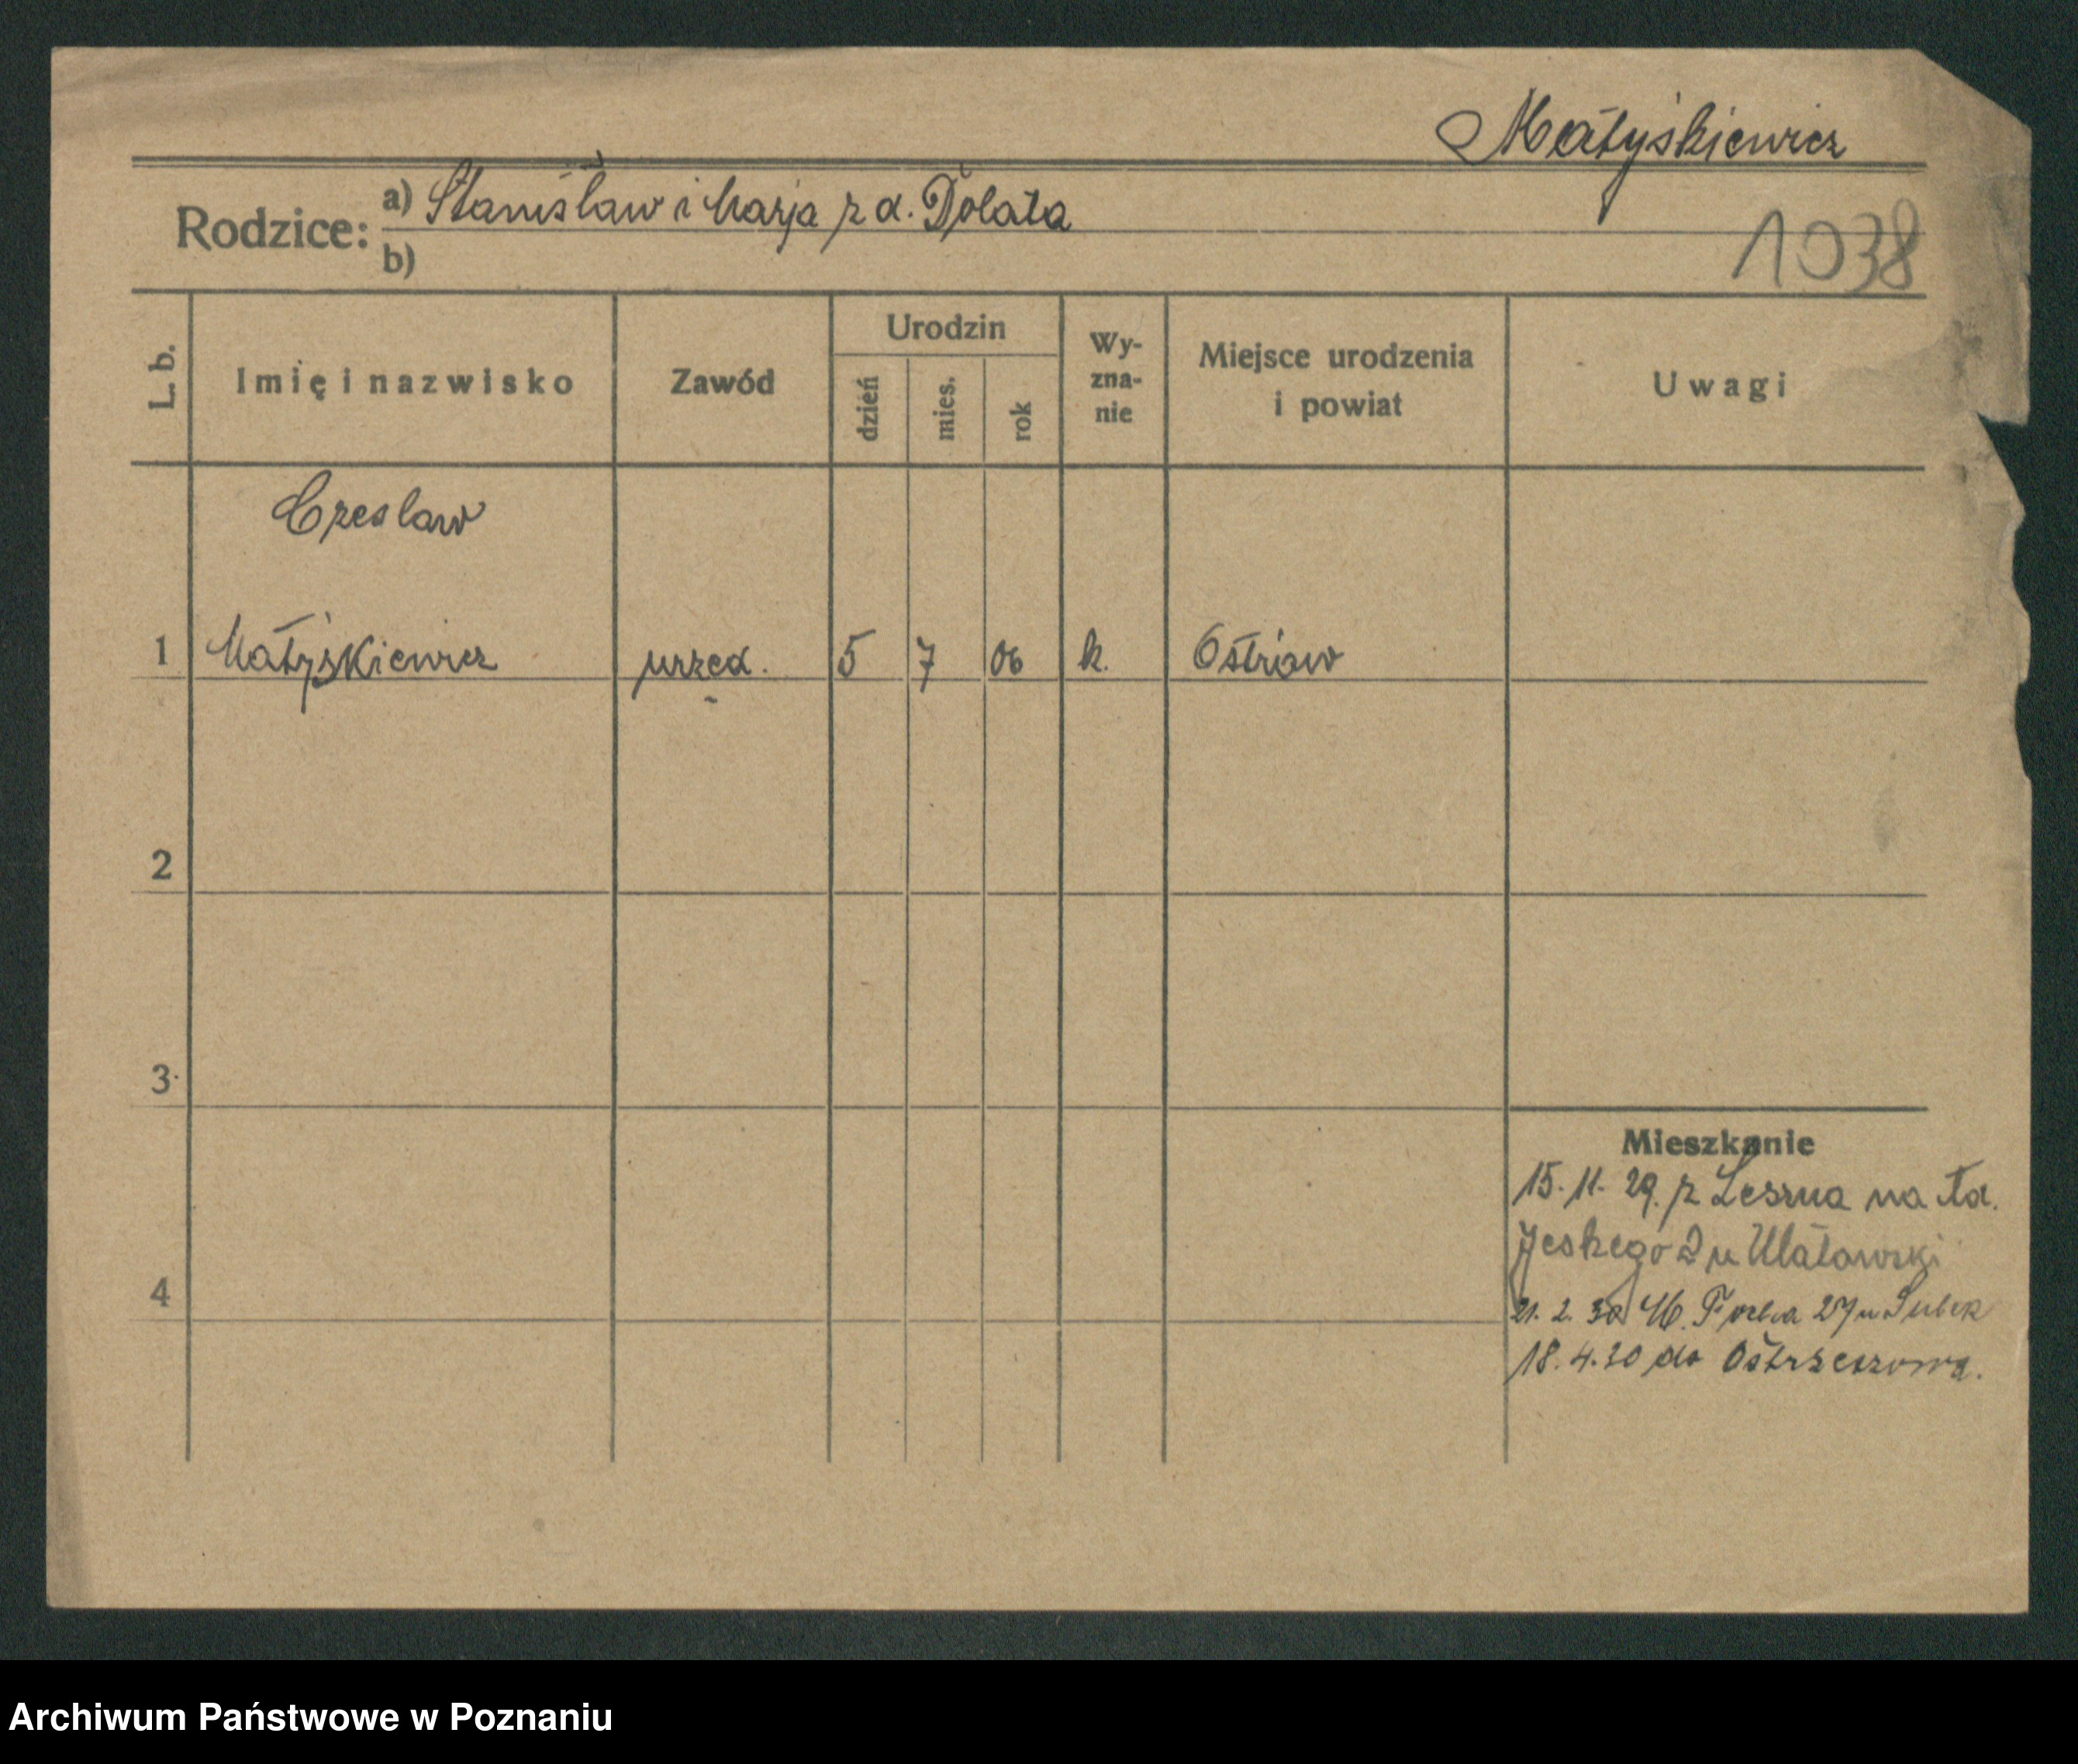 Matyśkiewicz
Rodzice: a) Stanisław i Marja z d. Dolata
b)
1038
L. b.
Imię i nazwisko
Zawód
Urodzin
dzień
mies.
rok
Wy-
zna-
nie
Miejsce urodzenia
i powiat
Uwagi
Czeslaw
1 Matyśkiewicz urzęd. 5 7 06 k. Ostrów
2
3
Mieszkanie
15. 11. 29. z Leszna na
Jeskego 2 u
4
21. 2. 30 M. Focha 27 u
18. 4. 30 do Ostrzeszowa.
Archiwum Państwowe w Poznaniu